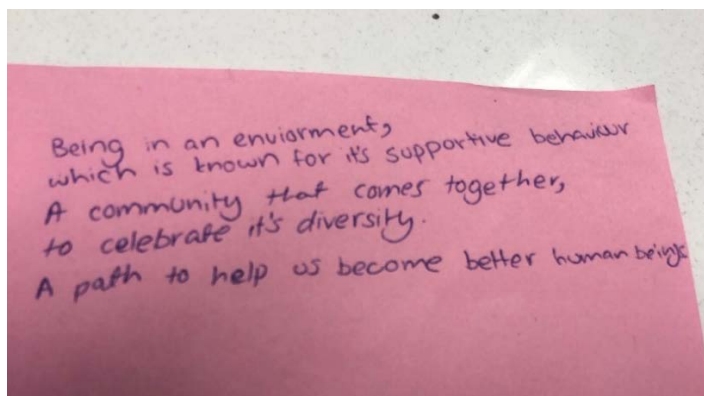 Being in an enviorment,
which is known for it's supportive behaviour
A community that comes together,
to celebrate it's diversity.
A path to help us become better human beings